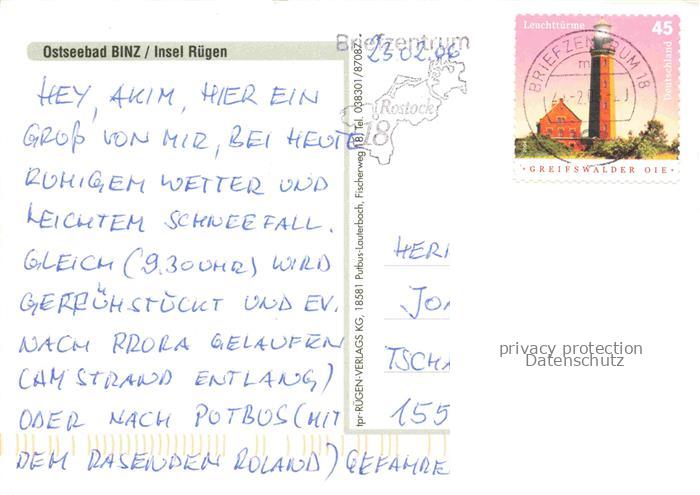 Ostseebad BINZ / Insel Rügen
HEY, AKIM, HIER EIN
GRUß VON MIR, BEI HEUTE
RUHIGEM WETTER UND
LEICHTEM SCHNEEFALL.
GLEICH (9.30 UHR) WIRD
GEFRÜHSTÜCKT UND EV.
NACH PRORA GELAUFEN
(AM STRAND ENTLANG)
ODER NACH PUTBUS (MIT
DEM RASENDEN ROLAND) GEFAHRE
tpr-RÜGEN-VERLAGS KG, 18581 Putbus-Lauterbach, Fischerweg 18, Tel. 038301/87087
Briefzentrum
23.02.06
Rostock
18
Leuchttürme 45
Deutschland
BRIEFZENTRUM 18
GREIFSWALDER OIE
HER
JO
TSCHA
155
privacy protection
Datenschutz